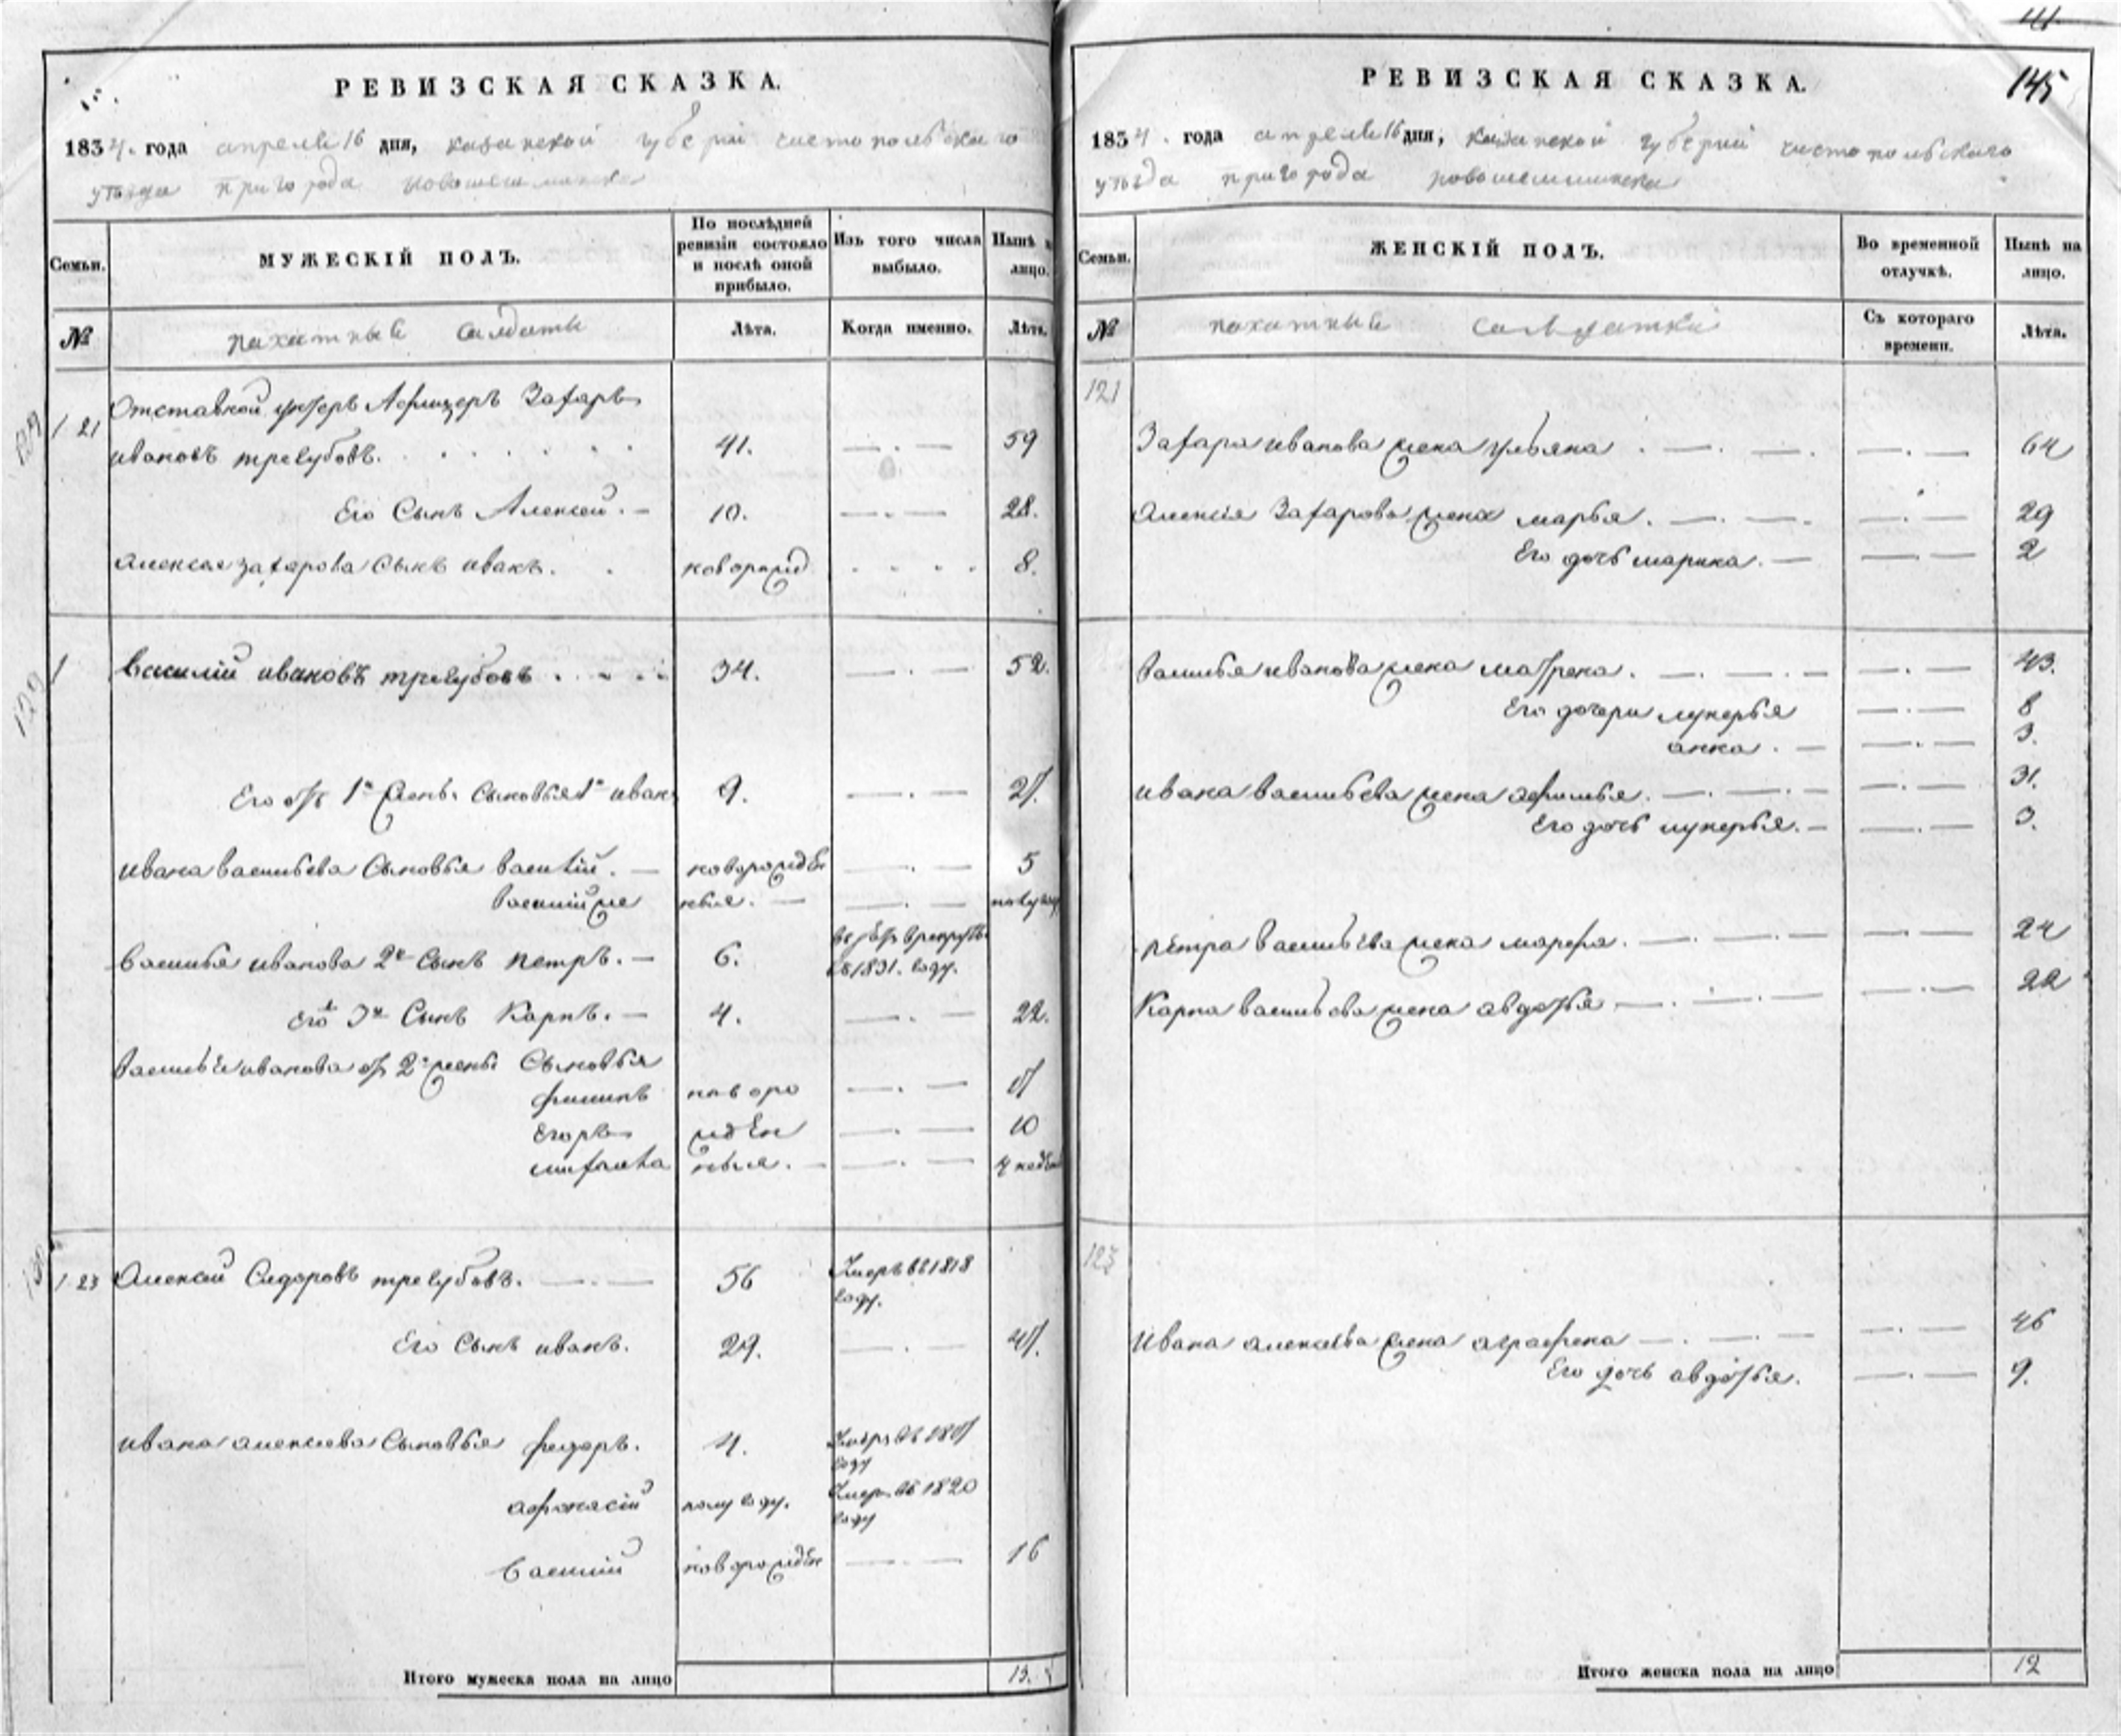 РЕВИЗСКАЯ СКАЗКА.
1834. года апреля 16 дня, казанской губернии чистопольскаго
уѣзда пригорода новошешминска
Семьи.
МУЖЕСКІЙ ПОЛЪ.
По послѣдней ревизіи состояло и послѣ оной прибыло.
Изъ того числа выбыло.
Нынѣ на лицо.
№
пахатные салдаты
Лѣта.
Когда именно.
Лѣта.
129
121
Отставной унтеръ Афицеръ Захаръ
ивановъ трегубовъ.
41.
59
Его Сынъ Алексей.
10.
28.
Алексея захарова Сынъ иванъ.
новорожд
8.
129
1
Василий ивановъ трегубовъ
34.
52.
Его от 1й жены Сыновья 1й иванъ
9.
27.
ивана васильева Сыновья василий.
новорожден
5
василий же
ныя.
полугоду
василья иванова 2й Сынъ петръ.
6.
въ 1831. году.
Его 3й Сынъ Карпъ.
4.
22.
василья иванова от 2й жены Сыновья
филипъ
новоро
17
Егоръ
жден
10
михайла
ныя.
4 недели
130
123
Алексей Сидоровъ трегубовъ.
56
Умеръ въ 1818 году.
Его Сынъ иванъ.
29.
47.
ивана алексеева Сыновья федоръ.
4.
Умеръ въ году
афонасий
полугоду.
Умеръ въ 1820 году
Василий
новорожден
16
Итого мужеска пола на лицо
13.
РЕВИЗСКАЯ СКАЗКА.
145
1834. года апреля 16 дня, казанской губернии чистопольскаго
уѣзда пригорода новошешминска
Семьи.
ЖЕНСКІЙ ПОЛЪ.
Во временной отлучкѣ.
Нынѣ на лицо.
№
пахатные салдатки
Съ котораго времени.
Лѣта.
121
Захара иванова жена ульяна
64
Алексея Захарова жена марья.
29
Его дочь марина.
2
Василья иванова жена матрена.
43.
Его дочери лукерья
8
анна.
3.
ивана васильева жена афимья.
31.
Его дочь лукерья.
3.
петра васильева жена марфа.
24
Карпа васильева жена авдотья
22
123
Ивана алексеева жена аграфена
46
Его дочь авдотья.
9.
Итого женска пола на лицо
12